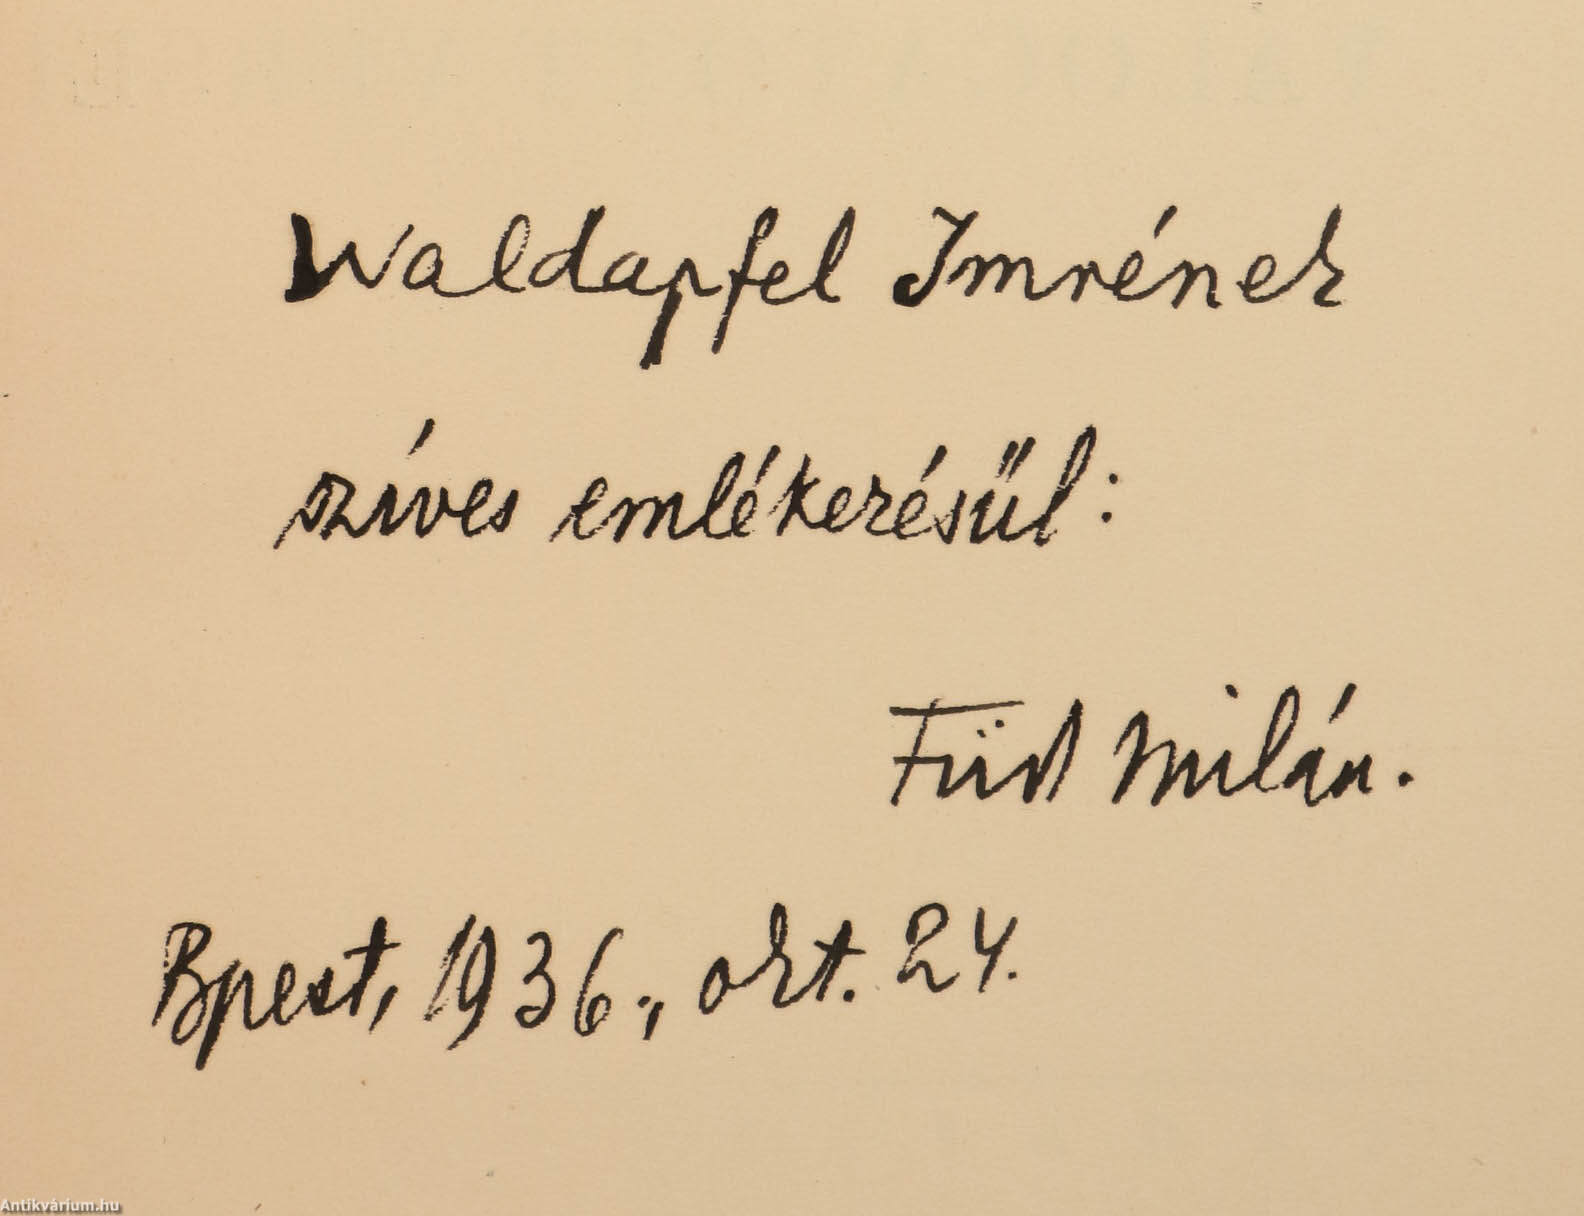 Waldapfel Imrének
szíves emlékezésűl:
Füst Milán.
Bpest, 1936., okt. 24.
Antikvárium.hu